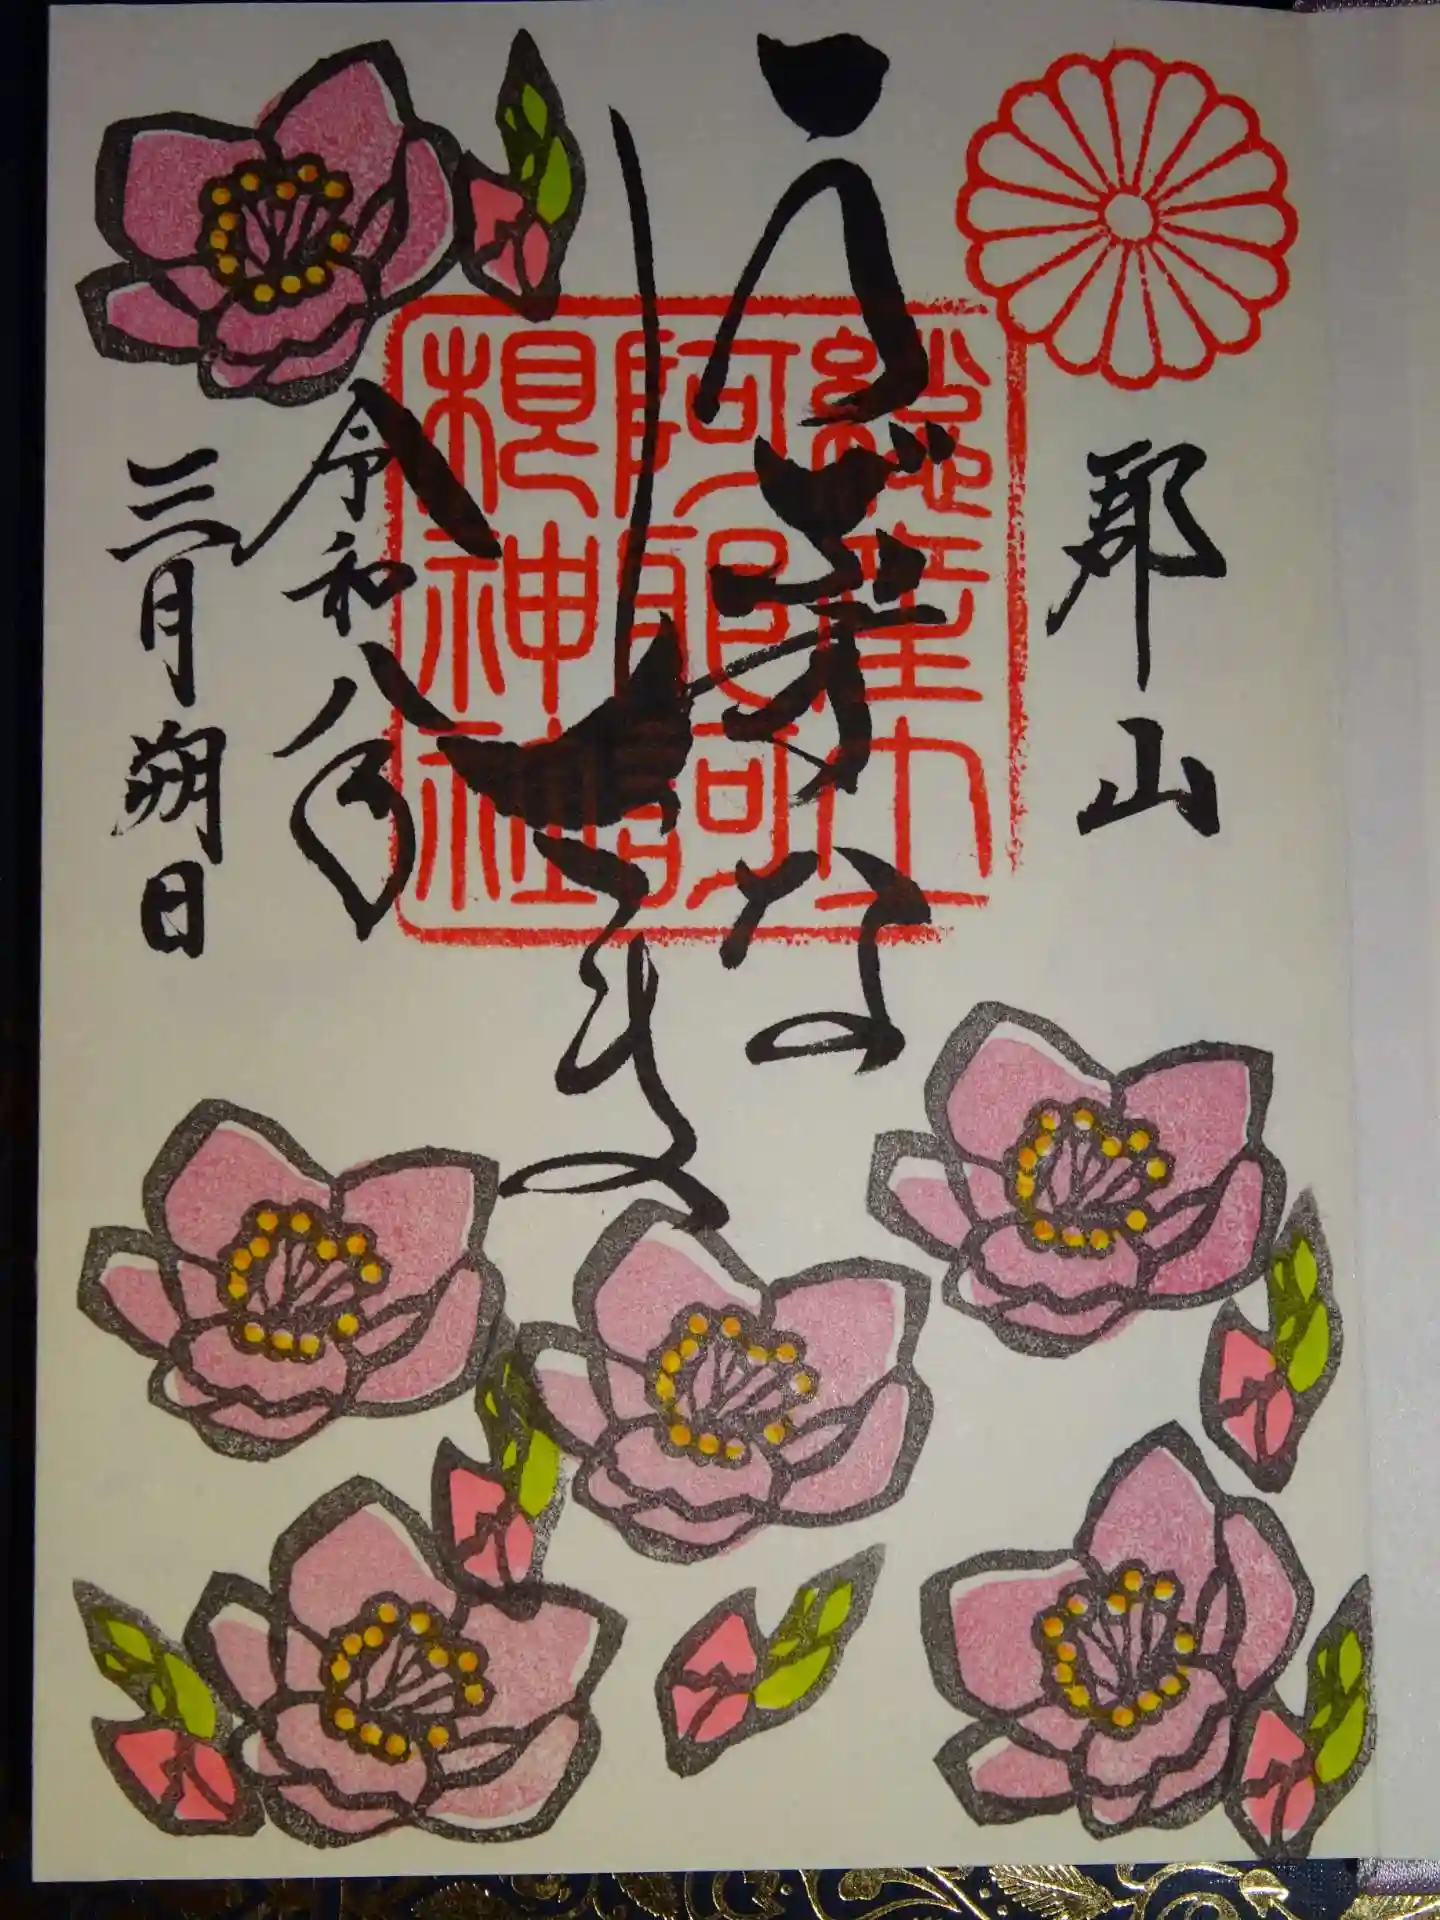 郡山
うぶすな
総産土
阿邪訶
根神社
令和八年
三月朔日